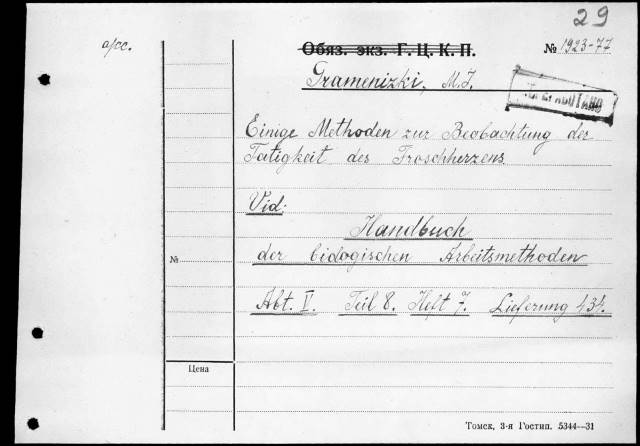 29
а/сс.
Обяз. экз. Г.Ц.К.П.
№ 1923-77
Gramenizki, M.J.
Einige Methoden zur Beobachtung der
Tatigkeit des Froschherzens
Vid:
Handbuch
der bidogischen Arbeitsmethoden
№
Abt. V. Teil 8. Heft 7. Lieferung 434.
Цена
Томск, 3-я Гостип. 5344—31